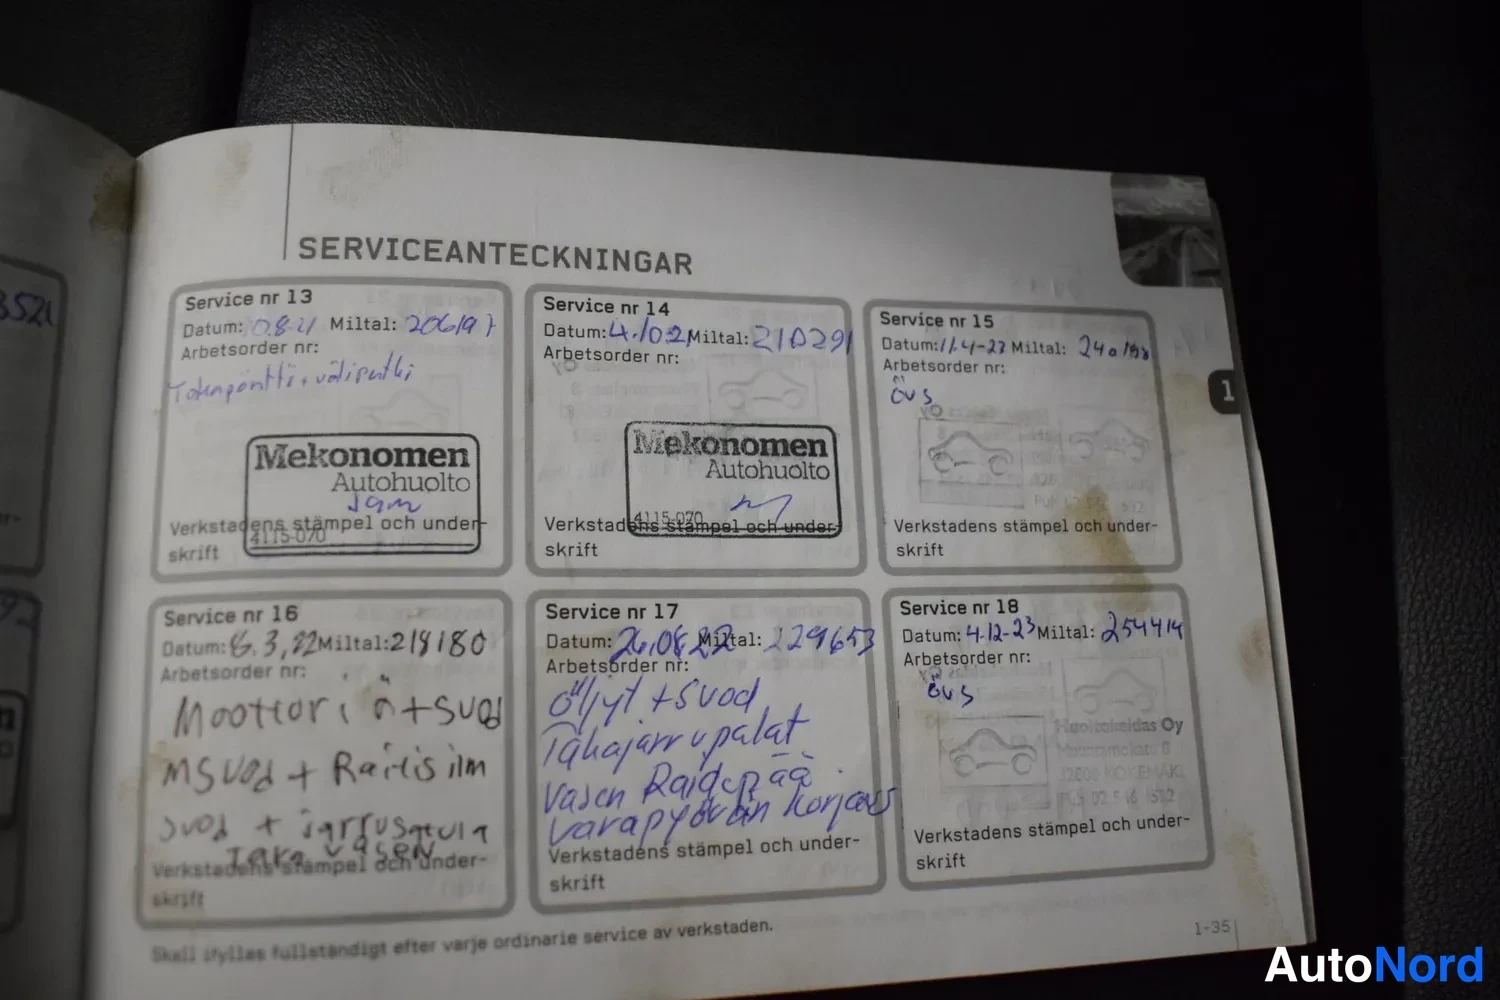 SERVICEANTECKNINGAR
Service nr 13
Datum: 0.8.21 Miltal: 206197
Arbetsorder nr:
väliputki
Mekonomen
Autohuolto
Verkstadens stämpel och under-
skrift
4115-070
Service nr 14
Datum: 4.10.2 Miltal: 210291
Arbetsorder nr:
Mekonomen
Autohuolto
4115-070
Verkstadens stämpel och under-
skrift
Service nr 15
Datum: 11.4-23 Miltal: 240198
Arbetsorder nr:
övs
Verkstadens stämpel och under-
skrift
1
Service nr 16
Datum: 8.3,22 Miltal: 218180
Arbetsorder nr:
Moottori ö+suod
MSuod + Raitisilm
suod + jarrusatula
Taka vasen
Verkstadens stämpel och under-
skrift
Service nr 17
Datum: 26.08.22 Miltal: 229653
Arbetsorder nr:
Öljyt + Suod
Takajarrupalat
Vasen Raidepää
Varapyörän korjaus
Verkstadens stämpel och under-
skrift
Service nr 18
Datum: 4.12-23 Miltal: 254414
Arbetsorder nr:
övs
Huoltokeidas Oy
32800 KOKEMÄKI
Verkstadens stämpel och under-
skrift
Skall ifylles fullständigt efter varje ordinarie service av verkstaden.
1-35
AutoNord